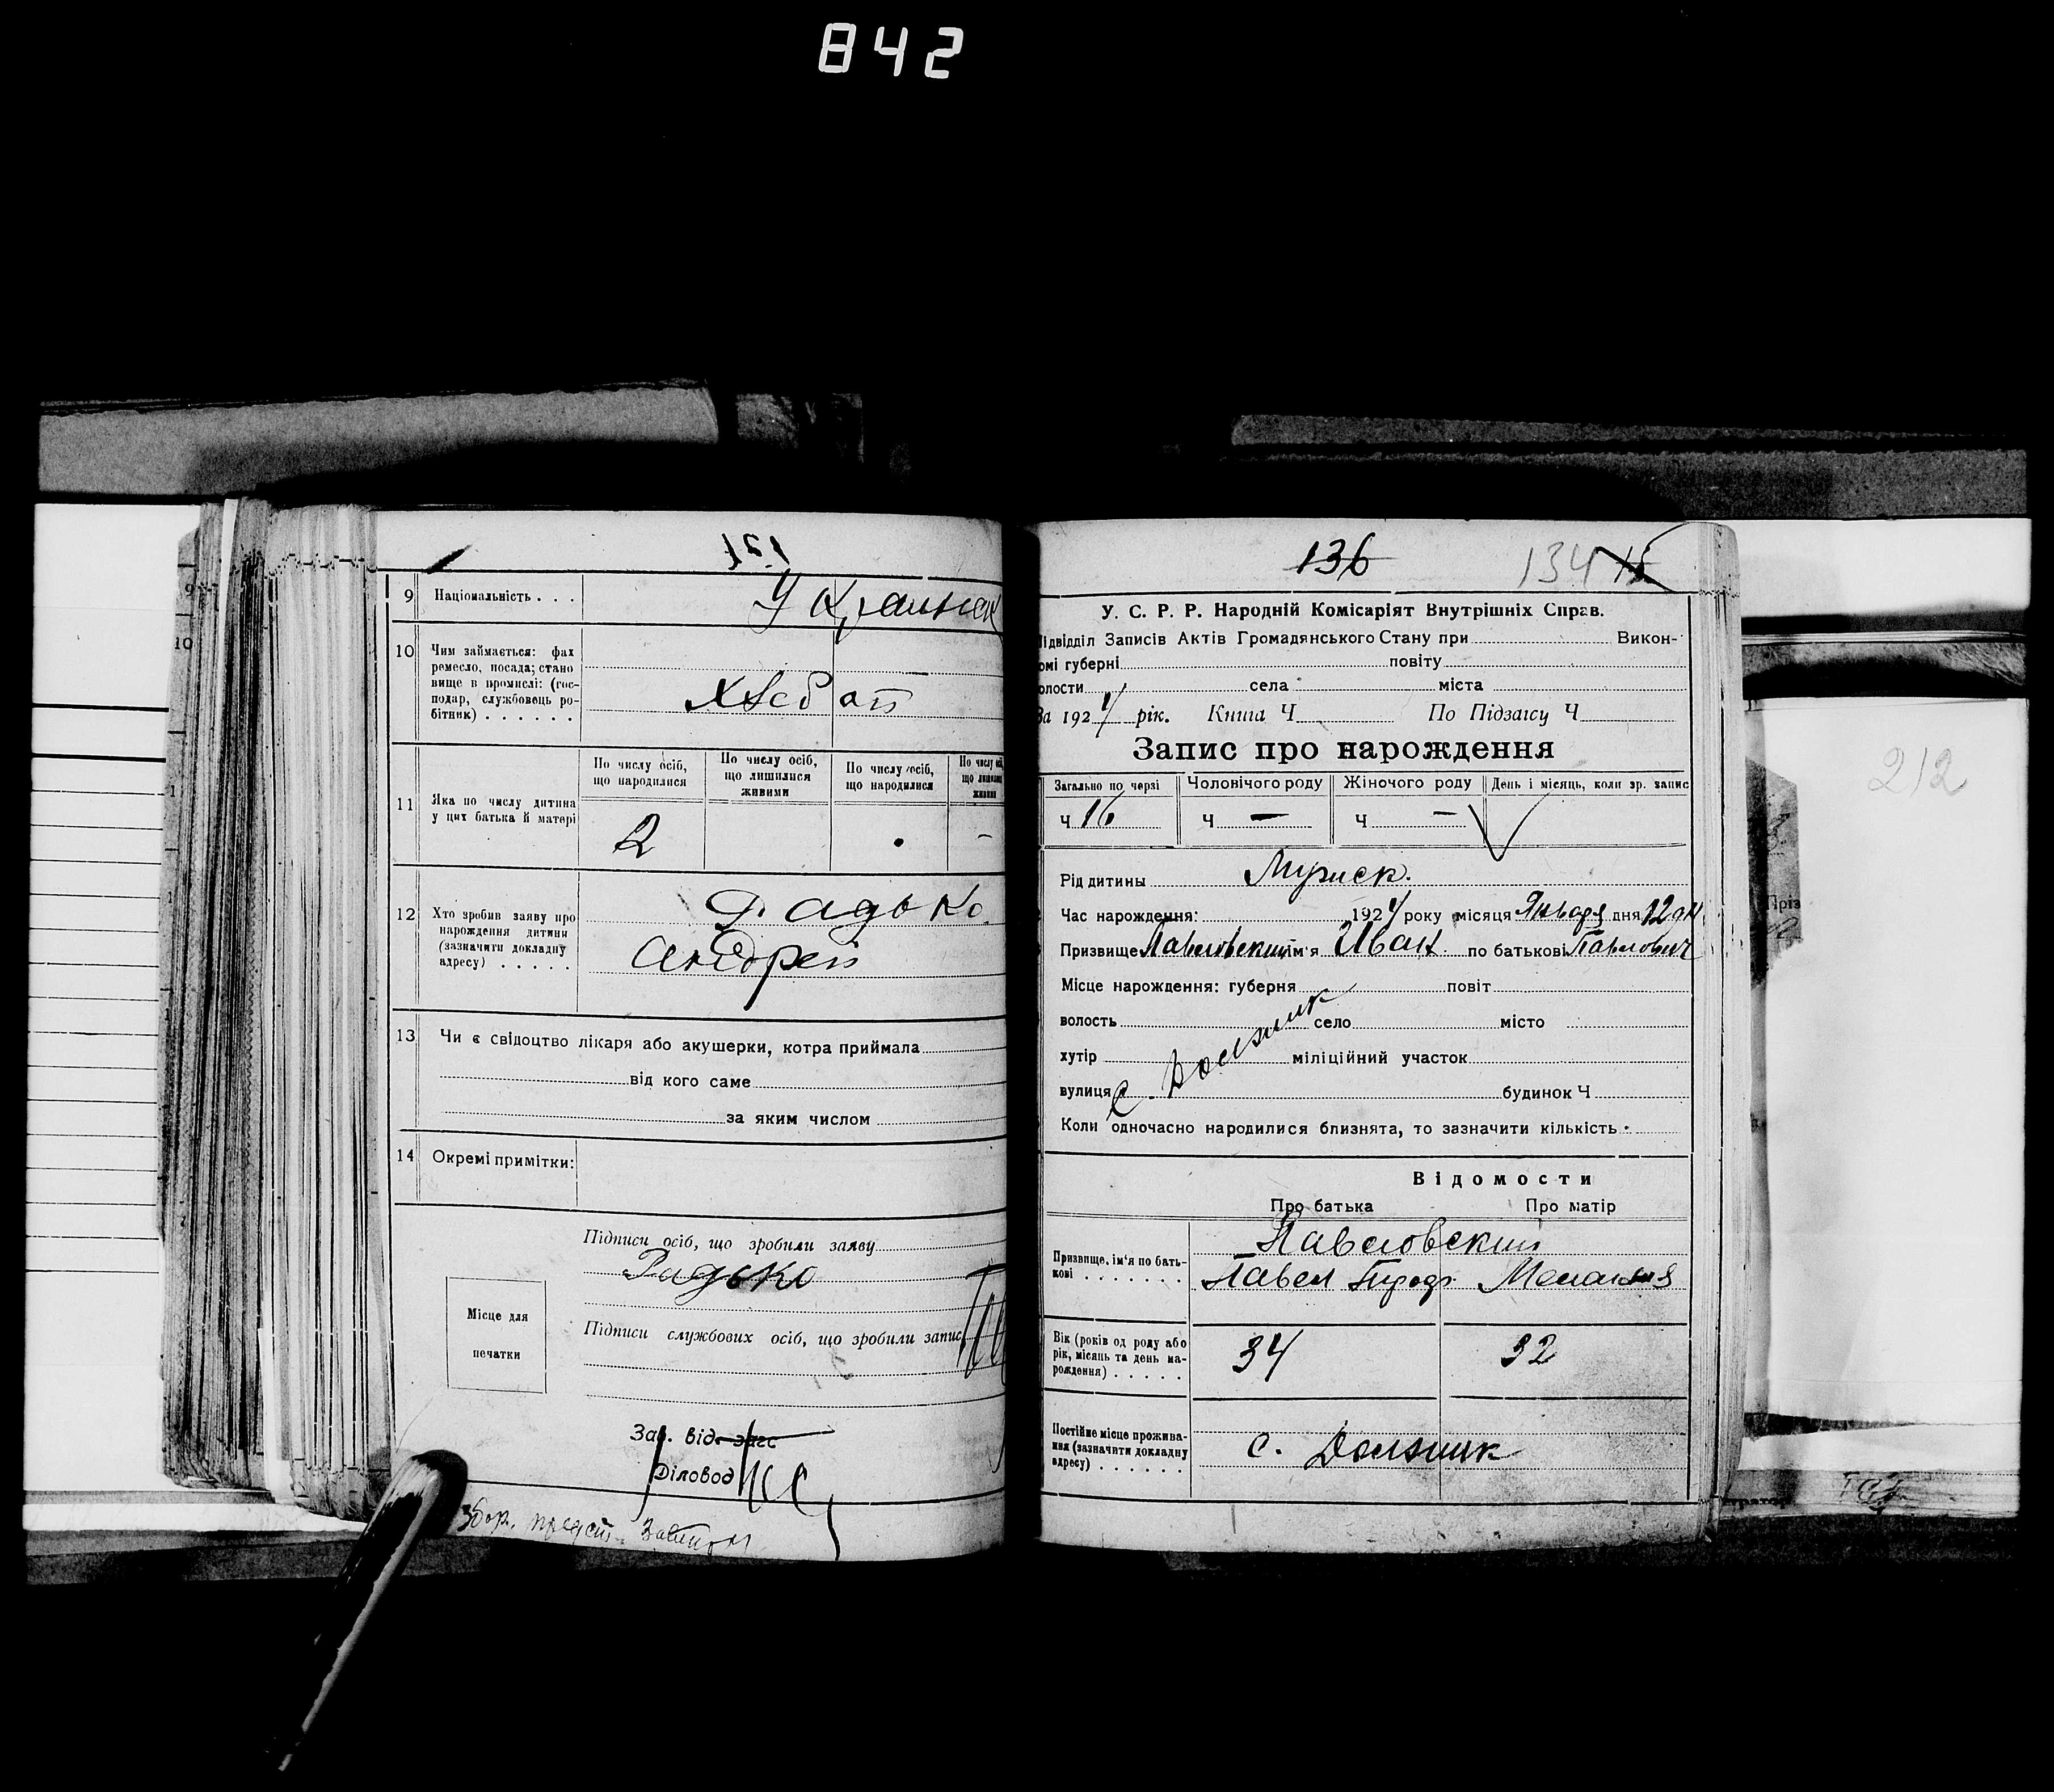 842
9 Національність . . . Украинск
10 Чим займається: фах
ремесло, посада; стано
вище в промислі: (гос-
подар, службовець ро-
бітник) . . . . . .
Хлебоп
11 Яка по числу дитина
у цих батька й матері
По числу осіб,
що народилися
По числу осіб,
що лишилися
живими
По числу осіб,
що народилися
2 -
12 Хто зробив заяву про
нарождення дитини
(зазначити докладну
адресу) . . . . .
Радько
Андрей
13 Чи є свідоцтво лікаря або акушерки, котра приймала
від кого саме
за яким числом
14 Окремі примітки:
Підписи осіб, що зробили заяву
Радько
Місце для
печатки
Підписи службових осіб, що зробили запис
Зав. від. загс
Діловод
136 134 15
У. С. Р. Р. Народній Комісаріят Внутрішніх Справ.
Підвідділ Записів Актів Громадянського Стану при Викон-
омі губерні повіту
олости села міста
За 1924 рік. Книга Ч По Підзагсу Ч
Запис про нарождення
Загально по черзі Чоловічого роду Жіночого роду День і місяць, коли зр. запис
Ч 16 Ч — Ч —
Рід дитини Мужск.
Час нарождення: 1924 року місяця Января дня 12 дн
Призвище Павловский ім'я Иван по батькові Павлович
Місце нарождення: губерня повіт
волость село місто
хутір міліційний участок
вулиця будинок Ч
с. Должик
Коли одночасно народилися близнята, то зазначити кількість
Відомости
Про батька Про матір
Призвище, ім'я по бать-
кові . . . . . . .
Павловский
Павел Мелания
Вік (років од роду або
рік, місяць та день на-
рождення) . . . . .
34 32
Постійне місце прожива-
ння (зазначити докладну
адресу) . . . . . .
с. Должик
212